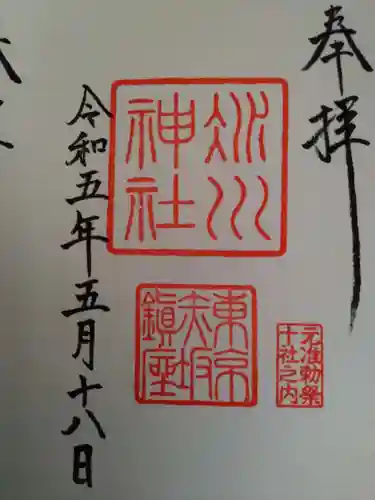 奉拝
氷川
神社
東京
赤坂
鎮座
元准勅祭
十社之内
令和五年五月十八日